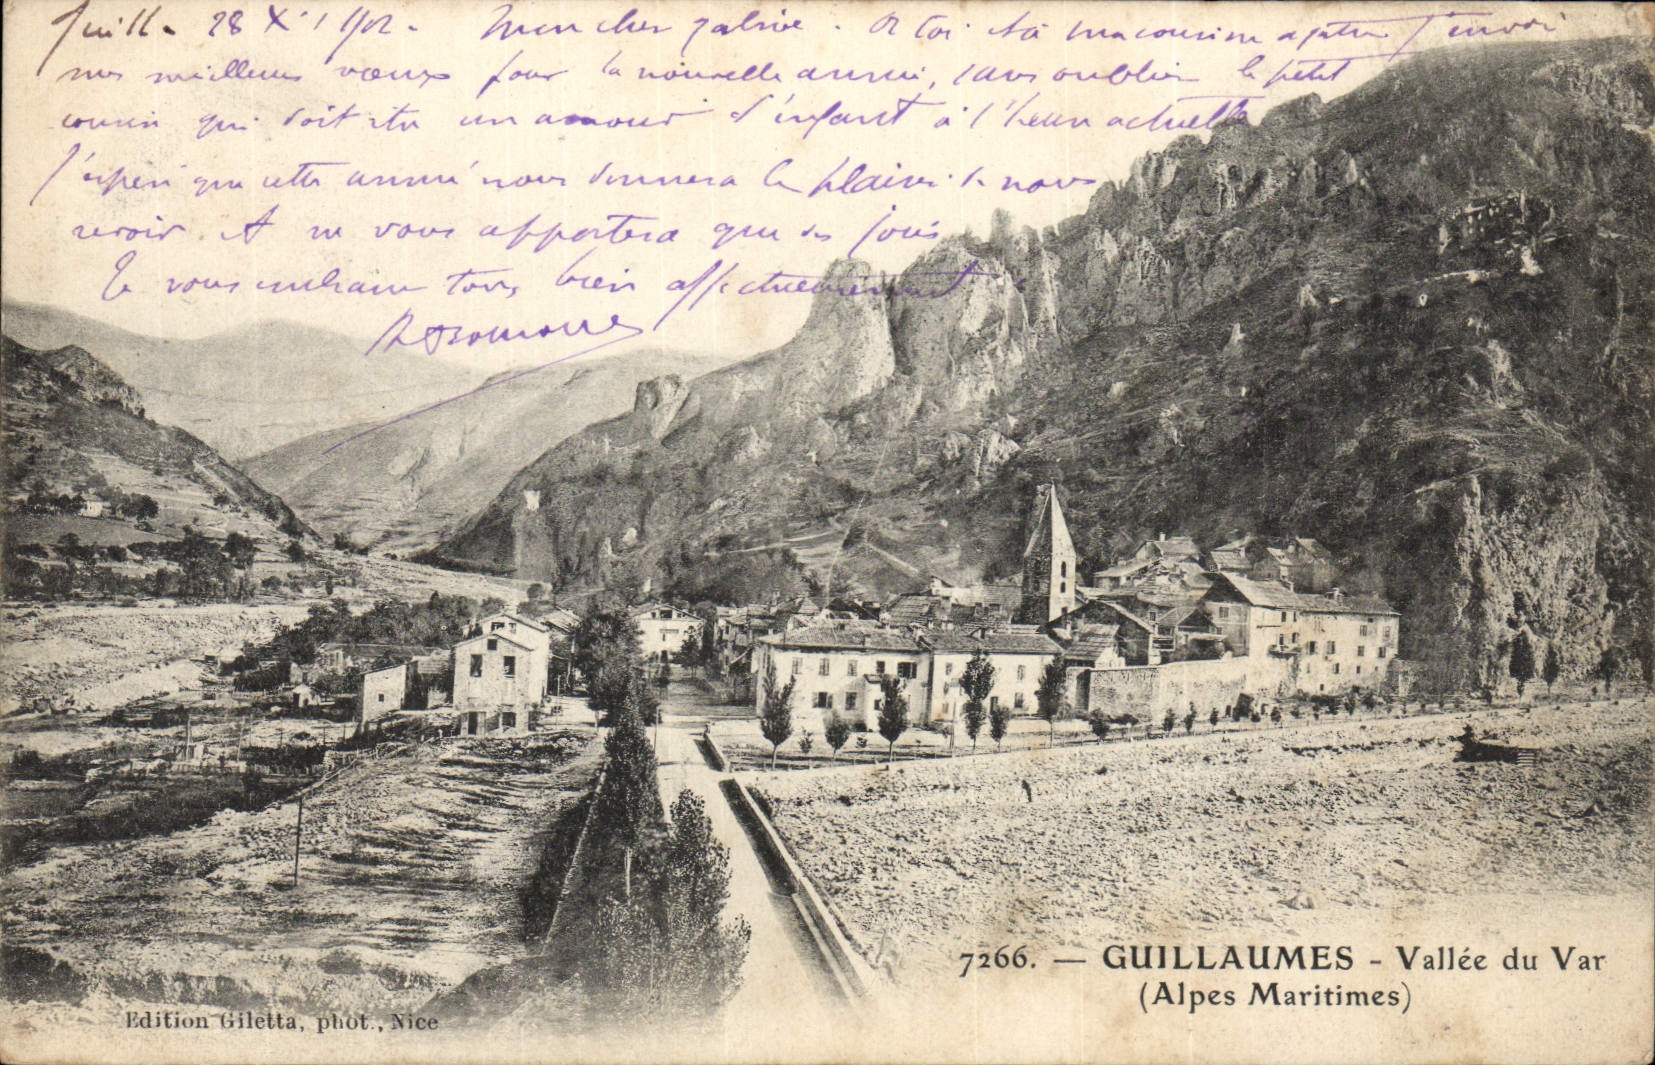 Guill. 28 Xb 1902. Mon cher Gabriel. A toi et à ma cousine j'envoi
mes meilleurs voeux pour la nouvelle année, sans oublier le petit
cousin qui doit être un amour d'enfant à l'heure actuelle
J'espère que cette année nous donnera le plaisir de nous
revoir et ne vous apportera que des joies
Je vous embrasse tous bien affectueusement
7266. — GUILLAUMES - Vallée du Var
(Alpes Maritimes)
Edition Giletta, phot., Nice